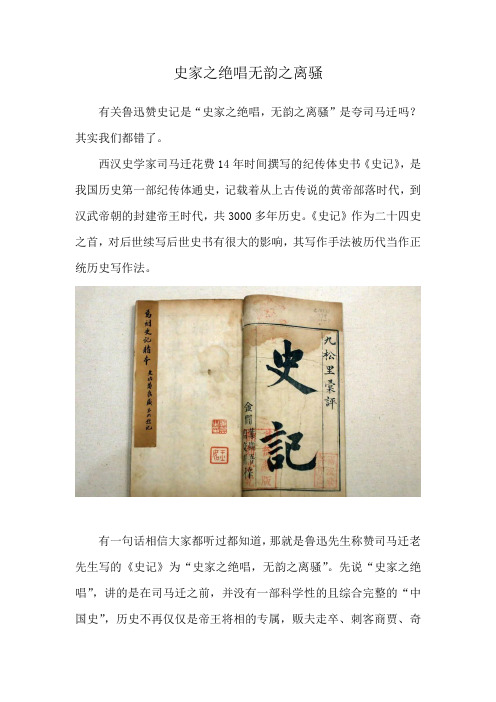 史家之绝唱无韵之离骚
有关鲁迅赞史记是“史家之绝唱，无韵之离骚”是夸司马迁吗？
其实我们都错了。
西汉史学家司马迁花费 14 年时间撰写的纪传体史书《史记》，是
我国历史第一部纪传体通史，记载着从上古传说的黄帝部落时代，到
汉武帝朝的封建帝王时代，共 3000 多年历史。《史记》作为二十四史
之首，对后世续写后世史书有很大的影响，其写作手法被历代当作正
统历史写作法。
九松里彙評
史記
有一句话相信大家都听过都知道，那就是鲁迅先生称赞司马迁老
先生写的《史记》为“史家之绝唱，无韵之离骚”。先说“史家之绝
唱”，讲的是在司马迁之前，并没有一部科学性的且综合完整的“中
国史”，历史不再仅仅是帝王将相的专属，贩夫走卒、刺客商贾、奇